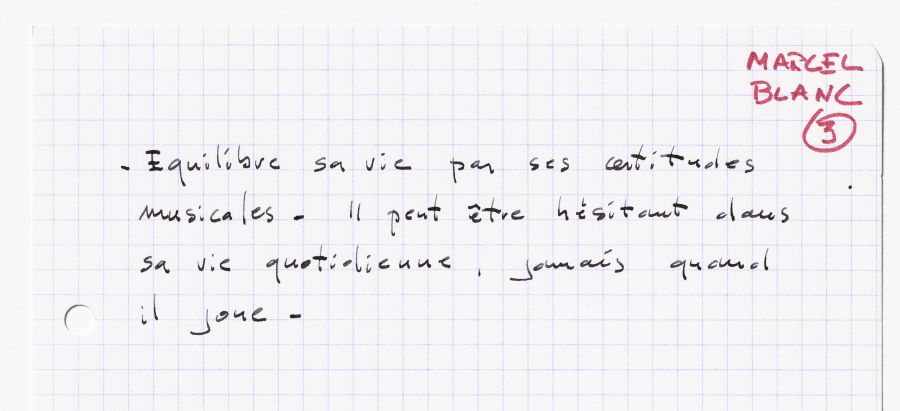 MARCEL
BLANC
3
- Equilibre sa vie par ses certitudes
musicales - Il peut être hésitant dans
sa vie quotidienne, jamais quand
il joue -